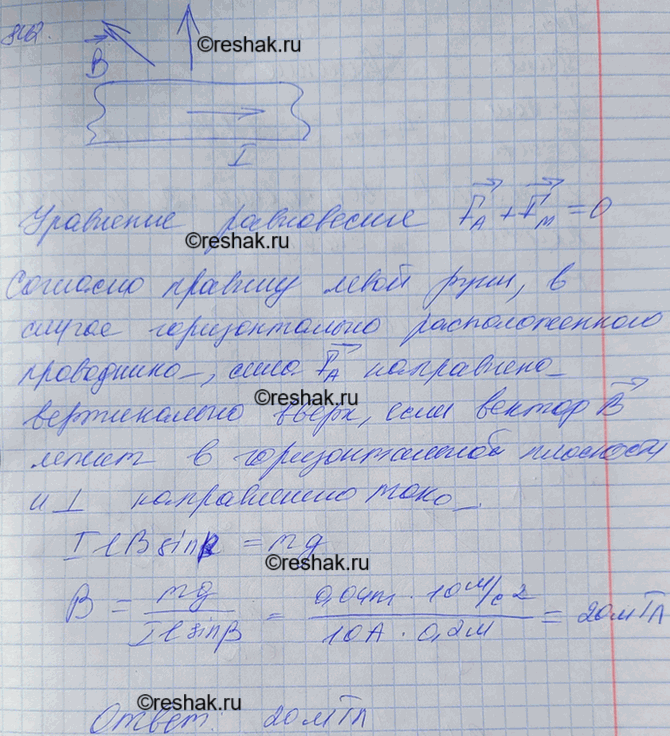 842.
©reshak.ru
B
I
Уравнение равновесия F_A + F_м = 0
©reshak.ru
Согласно правилу левой руки, в
случае горизонтально расположенного
проводника, сила F_A направлена
©reshak.ru
вертикально вверх, если вектор B
лежит в горизонтальной плоскости
и ⊥ направлению тока.
I l B sin β = mg
B = mg / I l sin β = 0,04 кг · 10 м/с² / 10 А · 0,2 м = 20 мТл
©reshak.ru
Ответ: 20 мТл